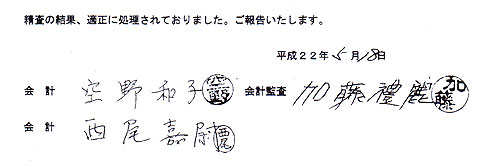 精査の結果、適正に処理されておりました。ご報告いたします。
平成22年5月18日
会計 空野和子 会計監査 加藤禮 加藤
会計 西尾嘉尉 西尾